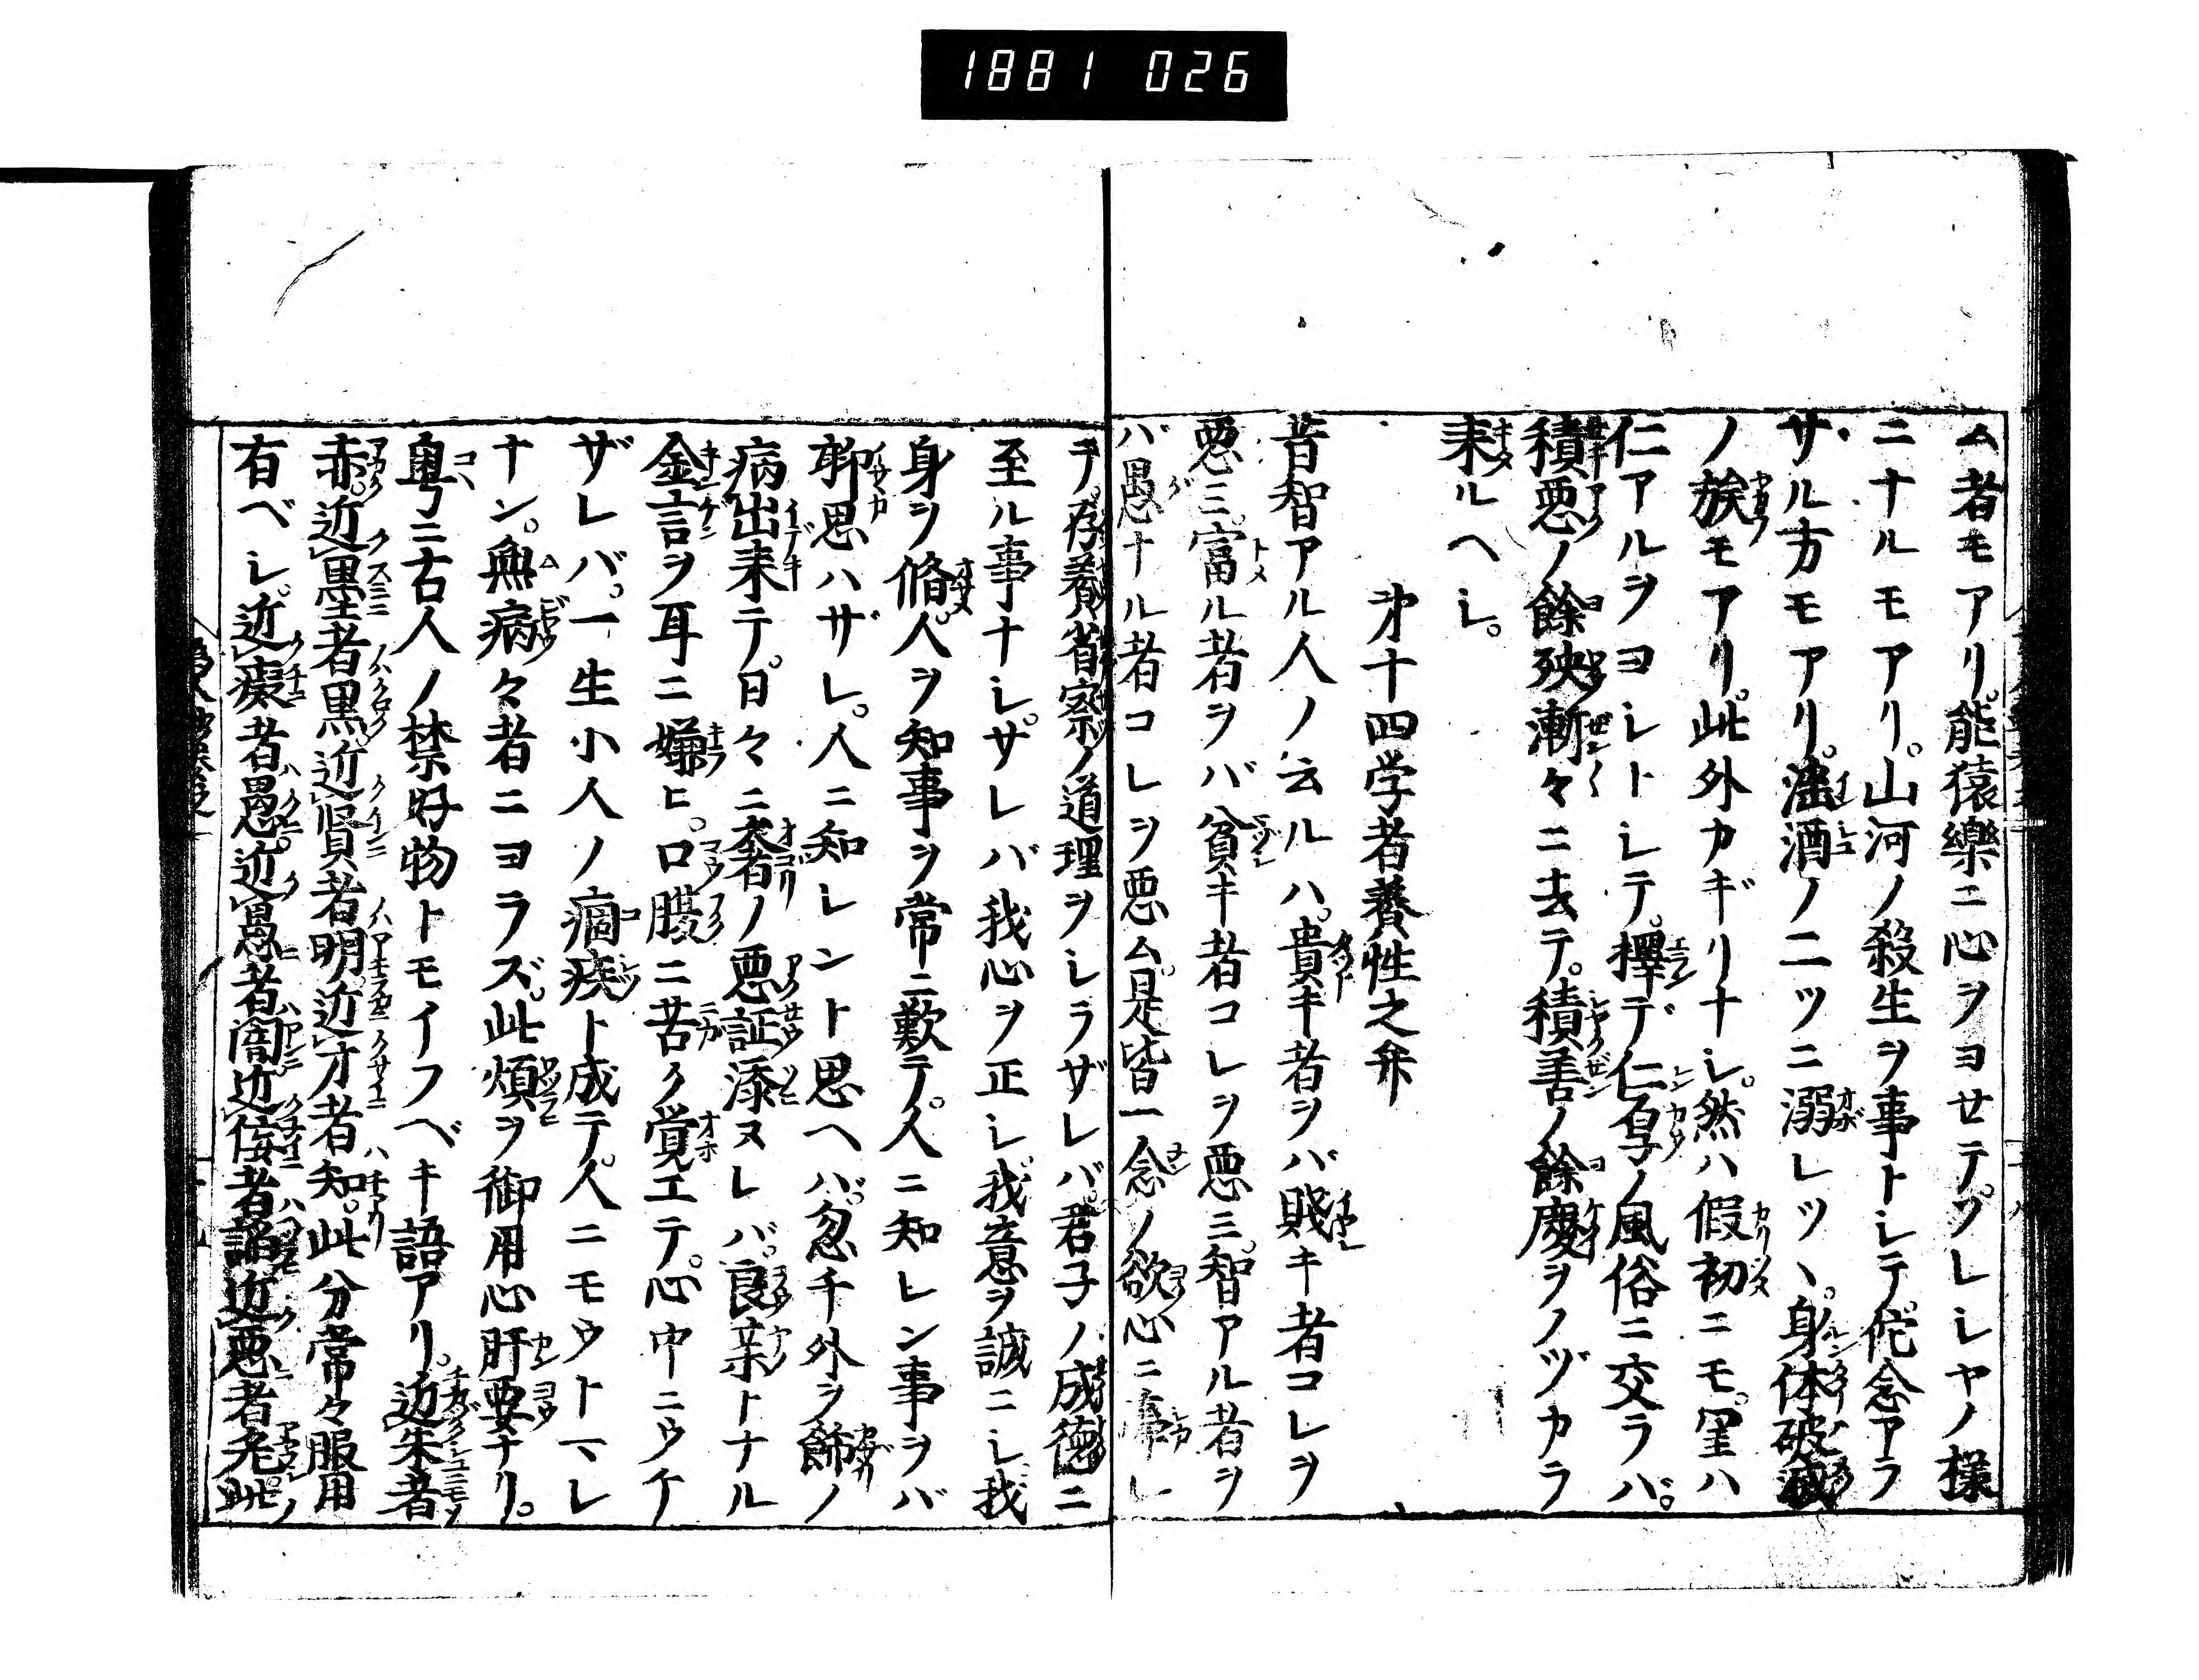 1881 026
ム者モアリ。能猿樂ニ心ヲヨセテ。ソレシヤノ様
ニナルモアリ。山河ノ殺生ヲ事トシテ。佗念アラ
サル方モアリ。淫酒ノ二ツニ溺レツヽ。身体破滅
ノ族モアリ。此外カギリナシ。然ハ假初ニモ。里ハ
仁アルヲヨシトシテ。擇デ仁ノ風俗ニ交ラバ。
積悪ノ餘殃漸々ニ去テ。積善ノ餘慶ヲノヅカラ
来ルヘシ。
㐧十四学者養性之弁
昔智アル人ノ云ルハ。貴キ者ヲバ賤キ者コレヲ
悪ミ。富ル者ヲバ貧キ者コレヲ悪ミ。智アル者ヲ
バ愚ナル者コレヲ悪ム。是皆一念ノ欲心ニ事レ
テ。存養省察ノ道理ヲシラザレバ。君子ノ成徳ニ
至ル事ナシ。サレバ我心ヲ正シ。我意ヲ誠ニシ。我
身ヲ脩。人ヲ知事ヲ常ニ歎テ。人ニ知レン事ヲバ
聊思ハザレ。人ニ知レント思ヘハ。忽チ外ヲ飾ノ
病出来テ。日々ニ奢ノ悪証添ヌレバ。良薬トナル
金言ヲ耳ニ嫌ヒ。口腹ニ苦ク覚エテ。心中ニウケ
ザレバ。一生小人ノ痼疾ト成テ。人ニモウトマレ
ナン。無病々者ニヨラズ。此煩ヲ御用心肝要ナリ。
粤ニ古人ノ禁好物トモイフベキ語アリ。近朱者
赤。近墨者黒。近賢者明。近才者知。此分常々服用
有ベシ。近癡者愚。近愚者闇。近佞者諂。近悪者先。此